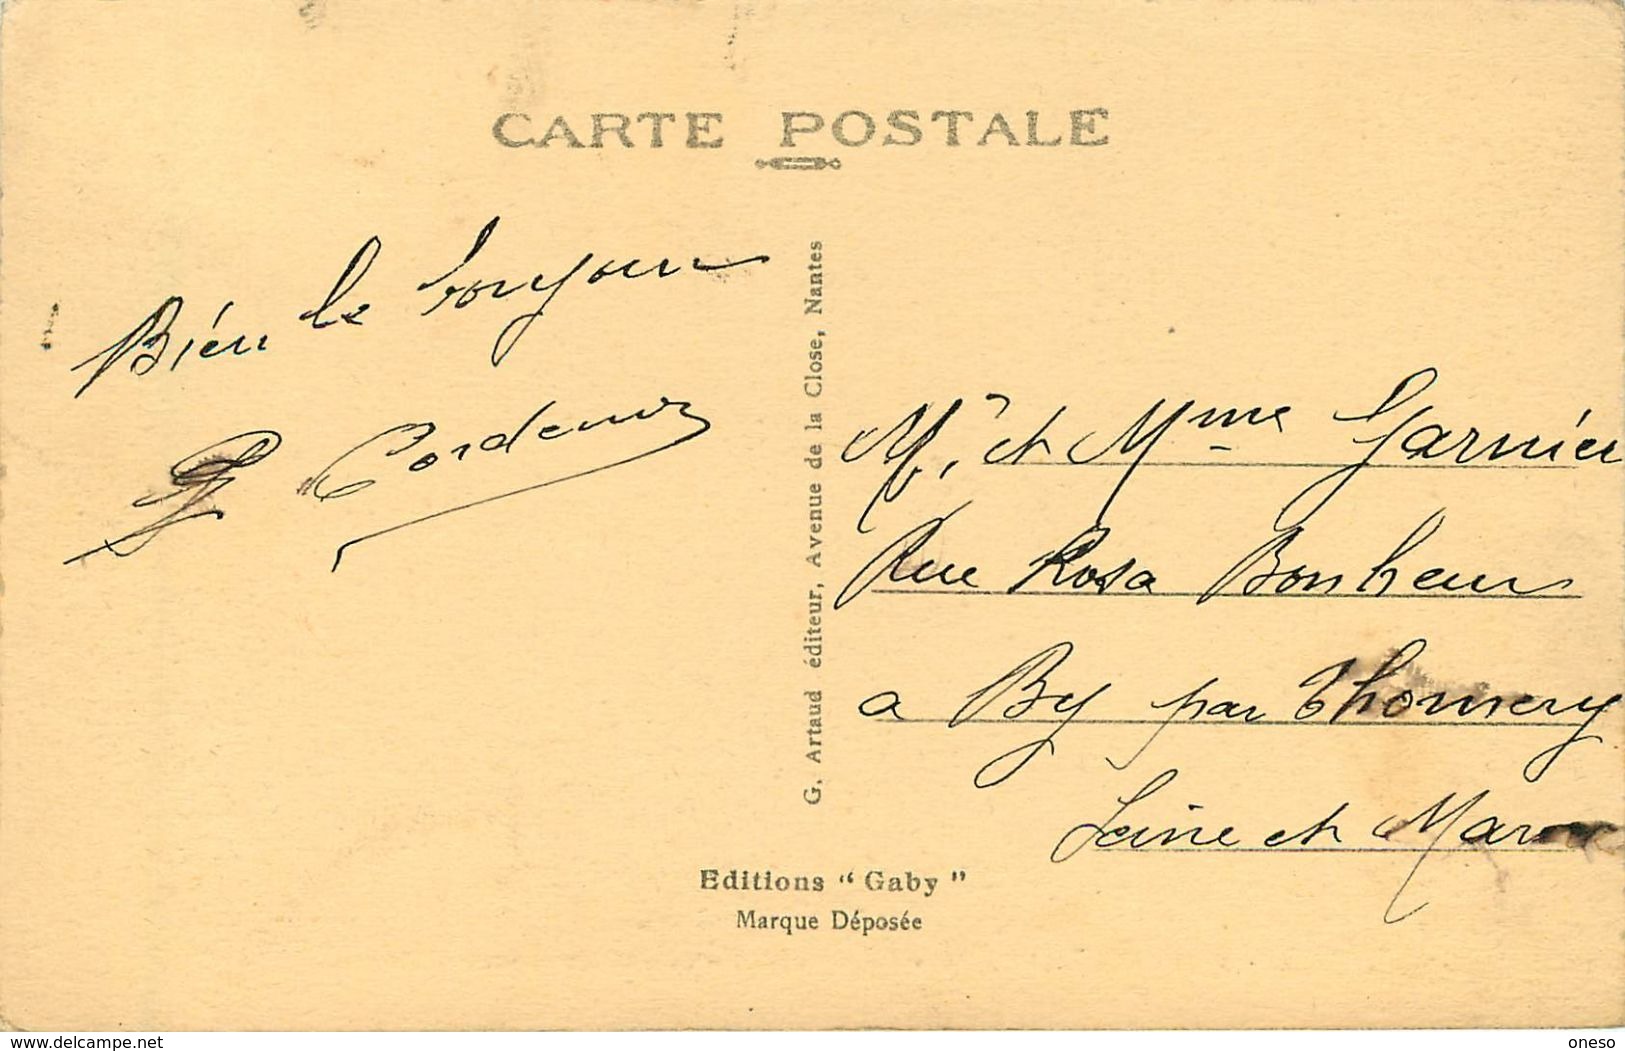 CARTE POSTALE
Bien le bonjour
G. Artaud éditeur, Avenue de la Close, Nantes
Mr et Mme Garnier
Rue Rosa Bonheur
a By par Thomery
Seine et Marne
Editions “ Gaby ”
Marque Déposée
www.delcampe.net
oneso